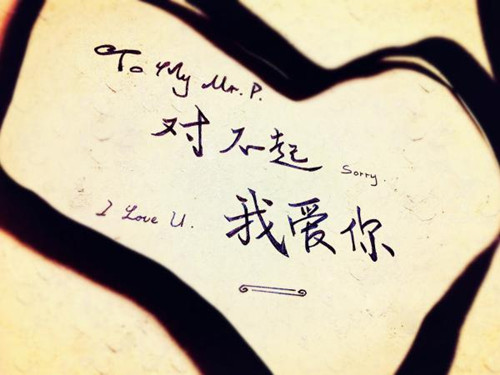 To My Mr. P.
对不起 Sorry.
I Love U. 我爱你